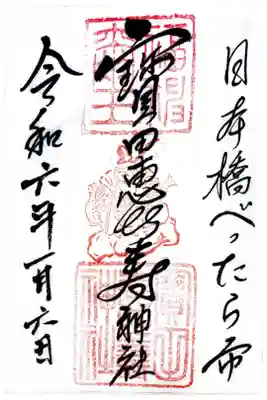 日本橋べったら市
寳田恵比寿神社
令和六年一月六日